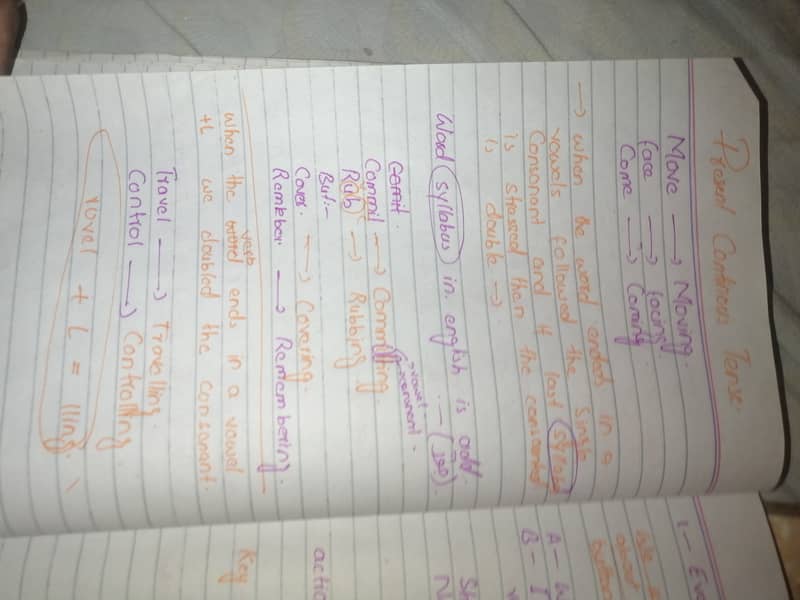 Present Continous Tense
Move → Moving.
face → facing
Come → Coming
→ when the word ended in a
vowels followed the single
Consonant and If last (syllable
is stressed then the consonant
is double →
Word (syllabus) in english is odd.
vowel
consonant.
Commit → Committing
Rub → Rubbing
But:-
Cover. → Covering.
Remember → Remembering.
verb
when the word ends in a vowel
+L we doubled the consonant.
Travel → Travelling.
Control → Controlling
vovel + L = lling.
1 - Eve
We
about
A - W
B - I
Sh
N
actio
Key